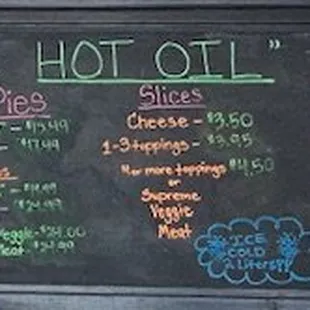 HOT OIL"
Pies
" - $15.49
- $17.49
- $24.99
Veggie - $24.00
Meat - $24.99
Slices
Cheese - $3.50
1-3 toppings - $3.95
4 or more toppings $4.50
or
Supreme
Veggie
Meat
ICE
COLD
2 liters